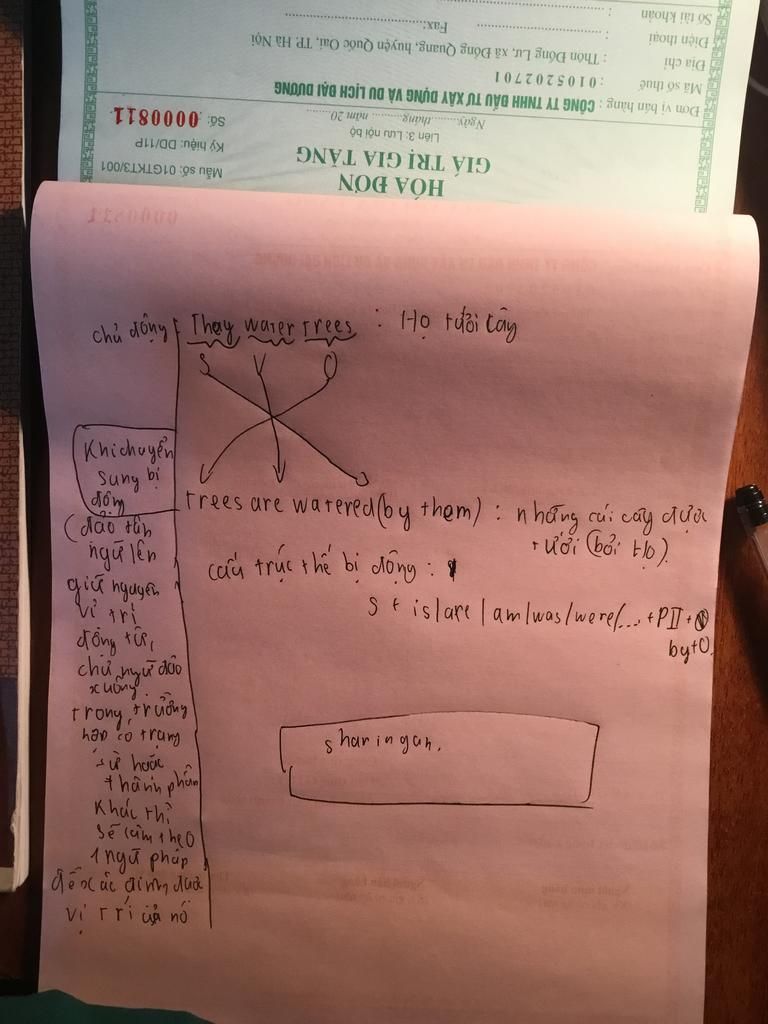 HÓA ĐƠN
GIÁ TRỊ GIA TĂNG
Liên 3: Lưu nội bộ
Ngày......... tháng......... năm 20......
Mẫu số: 01GTKT3/001
Ký hiệu: DD/11P
Số: 0000811
Đơn vị bán hàng : CÔNG TY TNHH ĐẦU TƯ XÂY DỰNG VÀ DU LỊCH ĐẠI DƯƠNG
Mã số thuế : 0105202701
Địa chỉ : Thôn Đồng Lư, xã Đồng Quang, huyện Quốc Oai, TP. Hà Nội
Điện thoại : Fax:
Số tài khoản :
chủ động : They water trees : Họ tưới cây
S V O
trees are watered (by them) : những cái cây được
tưới (bởi Họ).
cấu trúc thế bị động :
S + is/are/am/was/were/... + PII +
by+O.
Khi chuyển
sung bị
động
(đảo tân
ngữ lên
giữ nguyên
vị trí
động từ,
chủ ngữ đảo
xuống.
trong trường
hợp có trạng
từ hoặc
thành phần
khác thì
sẽ làm theo
1 ngữ pháp
để xác định được
vị trí của nó
sharingan.